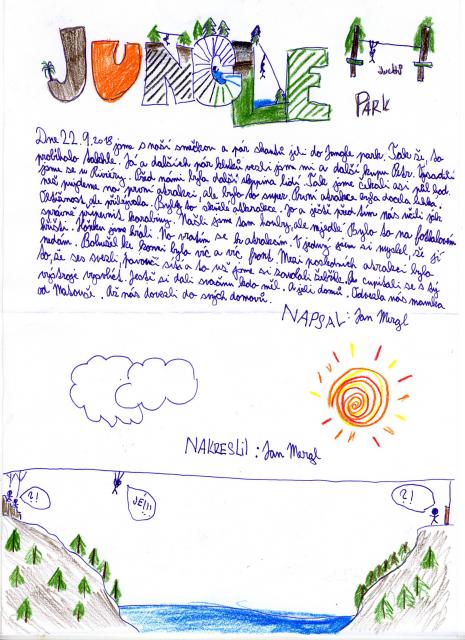 JUNGLE
PARK
Dne 22.9.2018 jsme s naší smečkou a pár skauty jeli do Jungle park. Takže, to
probíhalo takhle. Já a dalších pár kluků vezli jsme mi a další kupu Petr.
jsme se u Riviéry. Před námi byla další skupina lidí. Takže jsme čekali asi půl hod.
než půjdeme na první atrakci, ale bylo to super. První atrakce byla docela lehká.
Obtížnost, ale přibývala. Byly to skvělé atrakce. Jo a ještě před tím nás učili jak
správně připevnit karabiny. Našli jsme tam houby, ale nejedlé. Bylo to na fotbalovém
hřišti. Hošken jsme hráli. No vratím se k atrakcím. V jednej jsem si myslel, že již
nedám. Bohužel ke konci byla víc a víc front. Mezi posledních atrakcí byla
to, že ses svezl, pavoučí síť a to už jsme si zavolali žebřík. se s tý
výstroje vysvléct. Ještě si dali svačinu kdo měl. A jeli domů. Odvezla nás mamka
od Matouše. Až nás dovezli do svých domovů.
NAPSAL: Jan Mergl
NAKRESLIL: Jan Mergl
?!
JÉ!!!
?!